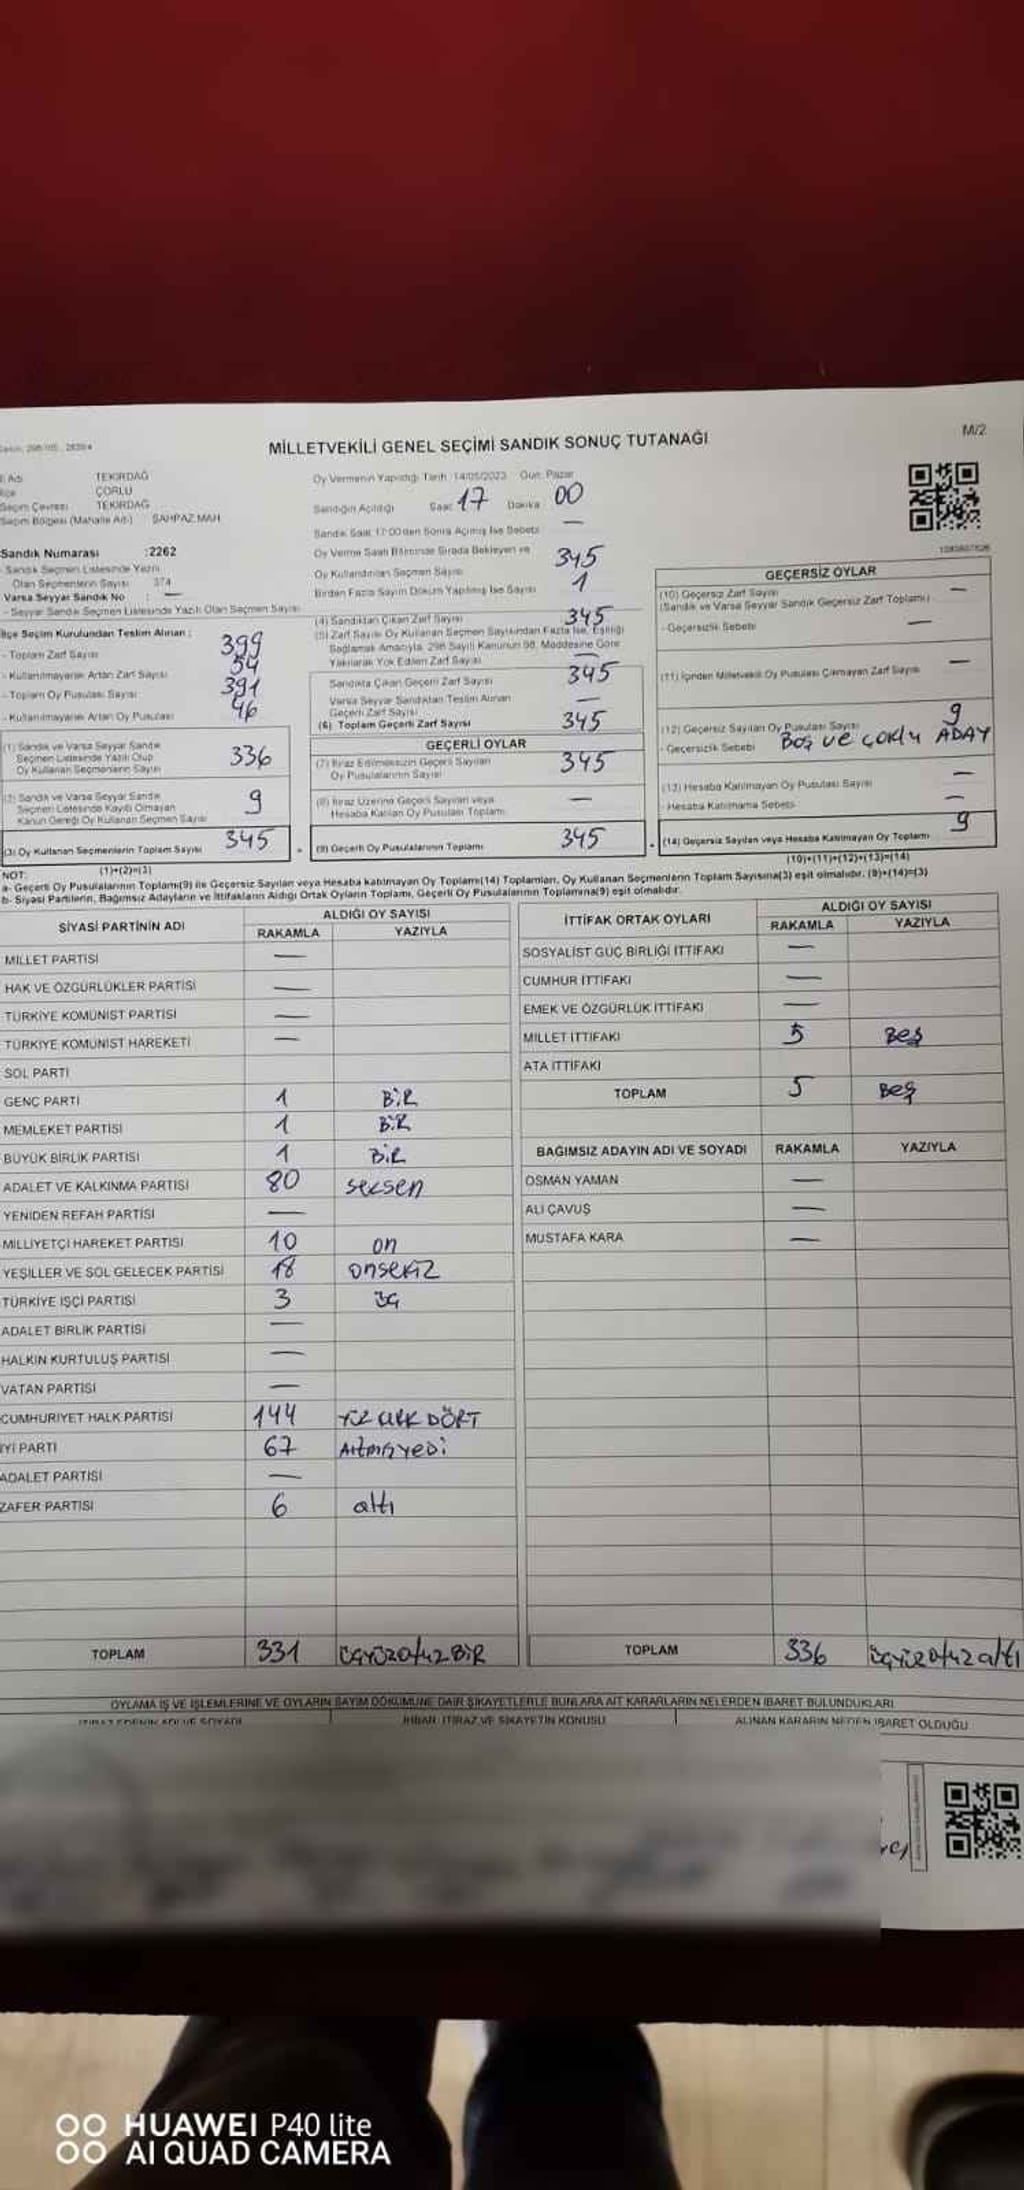 M/2
MİLLETVEKİLİ GENEL SEÇİMİ SANDIK SONUÇ TUTANAĞI
TEKİRDAĞ
ÇORLU
Seçim Çevresi TEKİRDAĞ
Seçim Bölgesi (Mahalle Adı) ŞAHPAZ MAH
Sandık Numarası :2262
- Sandık Seçmen Listesinde Yazılı
Olan Seçmenlerin Sayısı 374
Varsa Seyyar Sandık No : —
- Seyyar Sandık Seçmen Listesinde Yazılı Olan Seçmen Sayısı
İlçe Seçim Kurulundan Teslim Alınan :
- Toplam Zarf Sayısı 399
- Kullanılmayarak Artan Zarf Sayısı 54
- Toplam Oy Pusulası Sayısı 391
- Kullanılmayarak Artan Oy Pusulası 46
(1) Sandık ve Varsa Seyyar Sandık
Seçmen Listesinde Yazılı Olup
Oy Kullanan Seçmenlerin Sayısı 336
(2) Sandık ve Varsa Seyyar Sandık
Seçmen Listesinde Kayıtlı Olmayan
Kanun Gereği Oy Kullanan Seçmen Sayısı 9
(3) Oy Kullanan Seçmenlerin Toplam Sayısı 345
(1)+(2)=(3)
Oy Vermenin Yapıldığı Tarih :14/05/2023 Gün: Pazar
Sandığın Açıldığı Saat 17 Dakika 00
Sandık Saat 17:00'den Sonra Açılmış İse Sebebi —
Oy Verme Saati Bitiminde Sırada Bekleyen ve
Oy Kullandırılan Seçmen Sayısı 345
Birden Fazla Sayım Döküm Yapılmış İse Sayısı 1
(4) Sandıktan Çıkan Zarf Sayısı 345
(5) Zarf Sayısı Oy Kullanan Seçmen Sayısından Fazla İse, Eşitliği
Sağlamak Amacıyla, 298 Sayılı Kanunun 98. Maddesine Göre
Yakılarak Yok Edilen Zarf Sayısı —
Sandıkta Çıkan Geçerli Zarf Sayısı 345
Varsa Seyyar Sandıktan Teslim Alınan
Geçerli Zarf Sayısı —
(6) Toplam Geçerli Zarf Sayısı 345
GEÇERLİ OYLAR
(7) İtiraz Edilmeksizin Geçerli Sayılan
Oy Pusulalarının Sayısı 345
(8) İtiraz Üzerine Geçerli Sayılan veya
Hesaba Katılan Oy Pusulası Toplamı —
(9) Geçerli Oy Pusulalarının Toplamı 345
GEÇERSİZ OYLAR
(10) Geçersiz Zarf Sayısı —
(Sandık ve Varsa Seyyar Sandık Geçersiz Zarf Toplamı)
- Geçersizlik Sebebi —
(11) İçinden Milletvekili Oy Pusulası Çıkmayan Zarf Sayısı —
(12) Geçersiz Sayılan Oy Pusulası Sayısı 9
- Geçersizlik Sebebi BOŞ ve ÇOKLU ADAY
(13) Hesaba Katılmayan Oy Pusulası Sayısı —
- Hesaba Katılmama Sebebi —
(14) Geçersiz Sayılan veya Hesaba Katılmayan Oy Toplamı 9
(10)+(11)+(12)+(13)=(14)
NOT:
a- Geçerli Oy Pusulalarının Toplamı(9) ile Geçersiz Sayılan veya Hesaba katılmayan Oy Toplamı(14) Toplamları, Oy Kullanan Seçmenlerin Toplam Sayısına(3) eşit olmalıdır. (9)+(14)=(3)
b- Siyasi Partilerin, Bağımsız Adayların ve İttifakların Aldığı Ortak Oyların Toplamı, Geçerli Oy Pusulalarının Toplamına(9) eşit olmalıdır.
SİYASİ PARTİNİN ADI ALDIĞI OY SAYISI
RAKAMLA YAZIYLA
MİLLET PARTİSİ —
HAK VE ÖZGÜRLÜKLER PARTİSİ —
TÜRKİYE KOMÜNİST PARTİSİ —
TÜRKİYE KOMÜNİST HAREKETİ —
SOL PARTİ
GENÇ PARTİ 1 BİR
MEMLEKET PARTİSİ 1 BİR
BÜYÜK BİRLİK PARTİSİ 1 BİR
ADALET VE KALKINMA PARTİSİ 80 seksen
YENİDEN REFAH PARTİSİ —
MİLLİYETÇİ HAREKET PARTİSİ 10 on
YEŞİLLER VE SOL GELECEK PARTİSİ 18 onsekiz
TÜRKİYE İŞÇİ PARTİSİ 3 üç
ADALET BİRLİK PARTİSİ —
HALKIN KURTULUŞ PARTİSİ —
VATAN PARTİSİ —
CUMHURİYET HALK PARTİSİ 144 YÜZ KIRK DÖRT
İYİ PARTİ 67 Altmışyedi
ADALET PARTİSİ —
ZAFER PARTİSİ 6 altı
TOPLAM 331 üçyüzotuzBİR
İTTİFAK ORTAK OYLARI ALDIĞI OY SAYISI
RAKAMLA YAZIYLA
SOSYALİST GÜÇ BİRLİĞİ İTTİFAKI —
CUMHUR İTTİFAKI —
EMEK VE ÖZGÜRLÜK İTTİFAKI —
MİLLET İTTİFAKI 5 Beş
ATA İTTİFAKI
TOPLAM 5 Beş
BAĞIMSIZ ADAYIN ADI VE SOYADI RAKAMLA YAZIYLA
OSMAN YAMAN —
ALİ ÇAVUŞ —
MUSTAFA KARA —
TOPLAM 336 üçyüzotuzaltı
OYLAMA İŞ VE İŞLEMLERİNE VE OYLARIN SAYIM DÖKÜMÜNE DAİR ŞİKAYETLERLE BUNLARA AİT KARARLARIN NELERDEN İBARET BULUNDUKLARI
İTİRAZ EDENİN ADI VE SOYADI İHBAR, İTİRAZ VE ŞİKAYETİN KONUSU ALINAN KARARIN NEDEN İBARET OLDUĞU
HUAWEI P40 lite
AI QUAD CAMERA